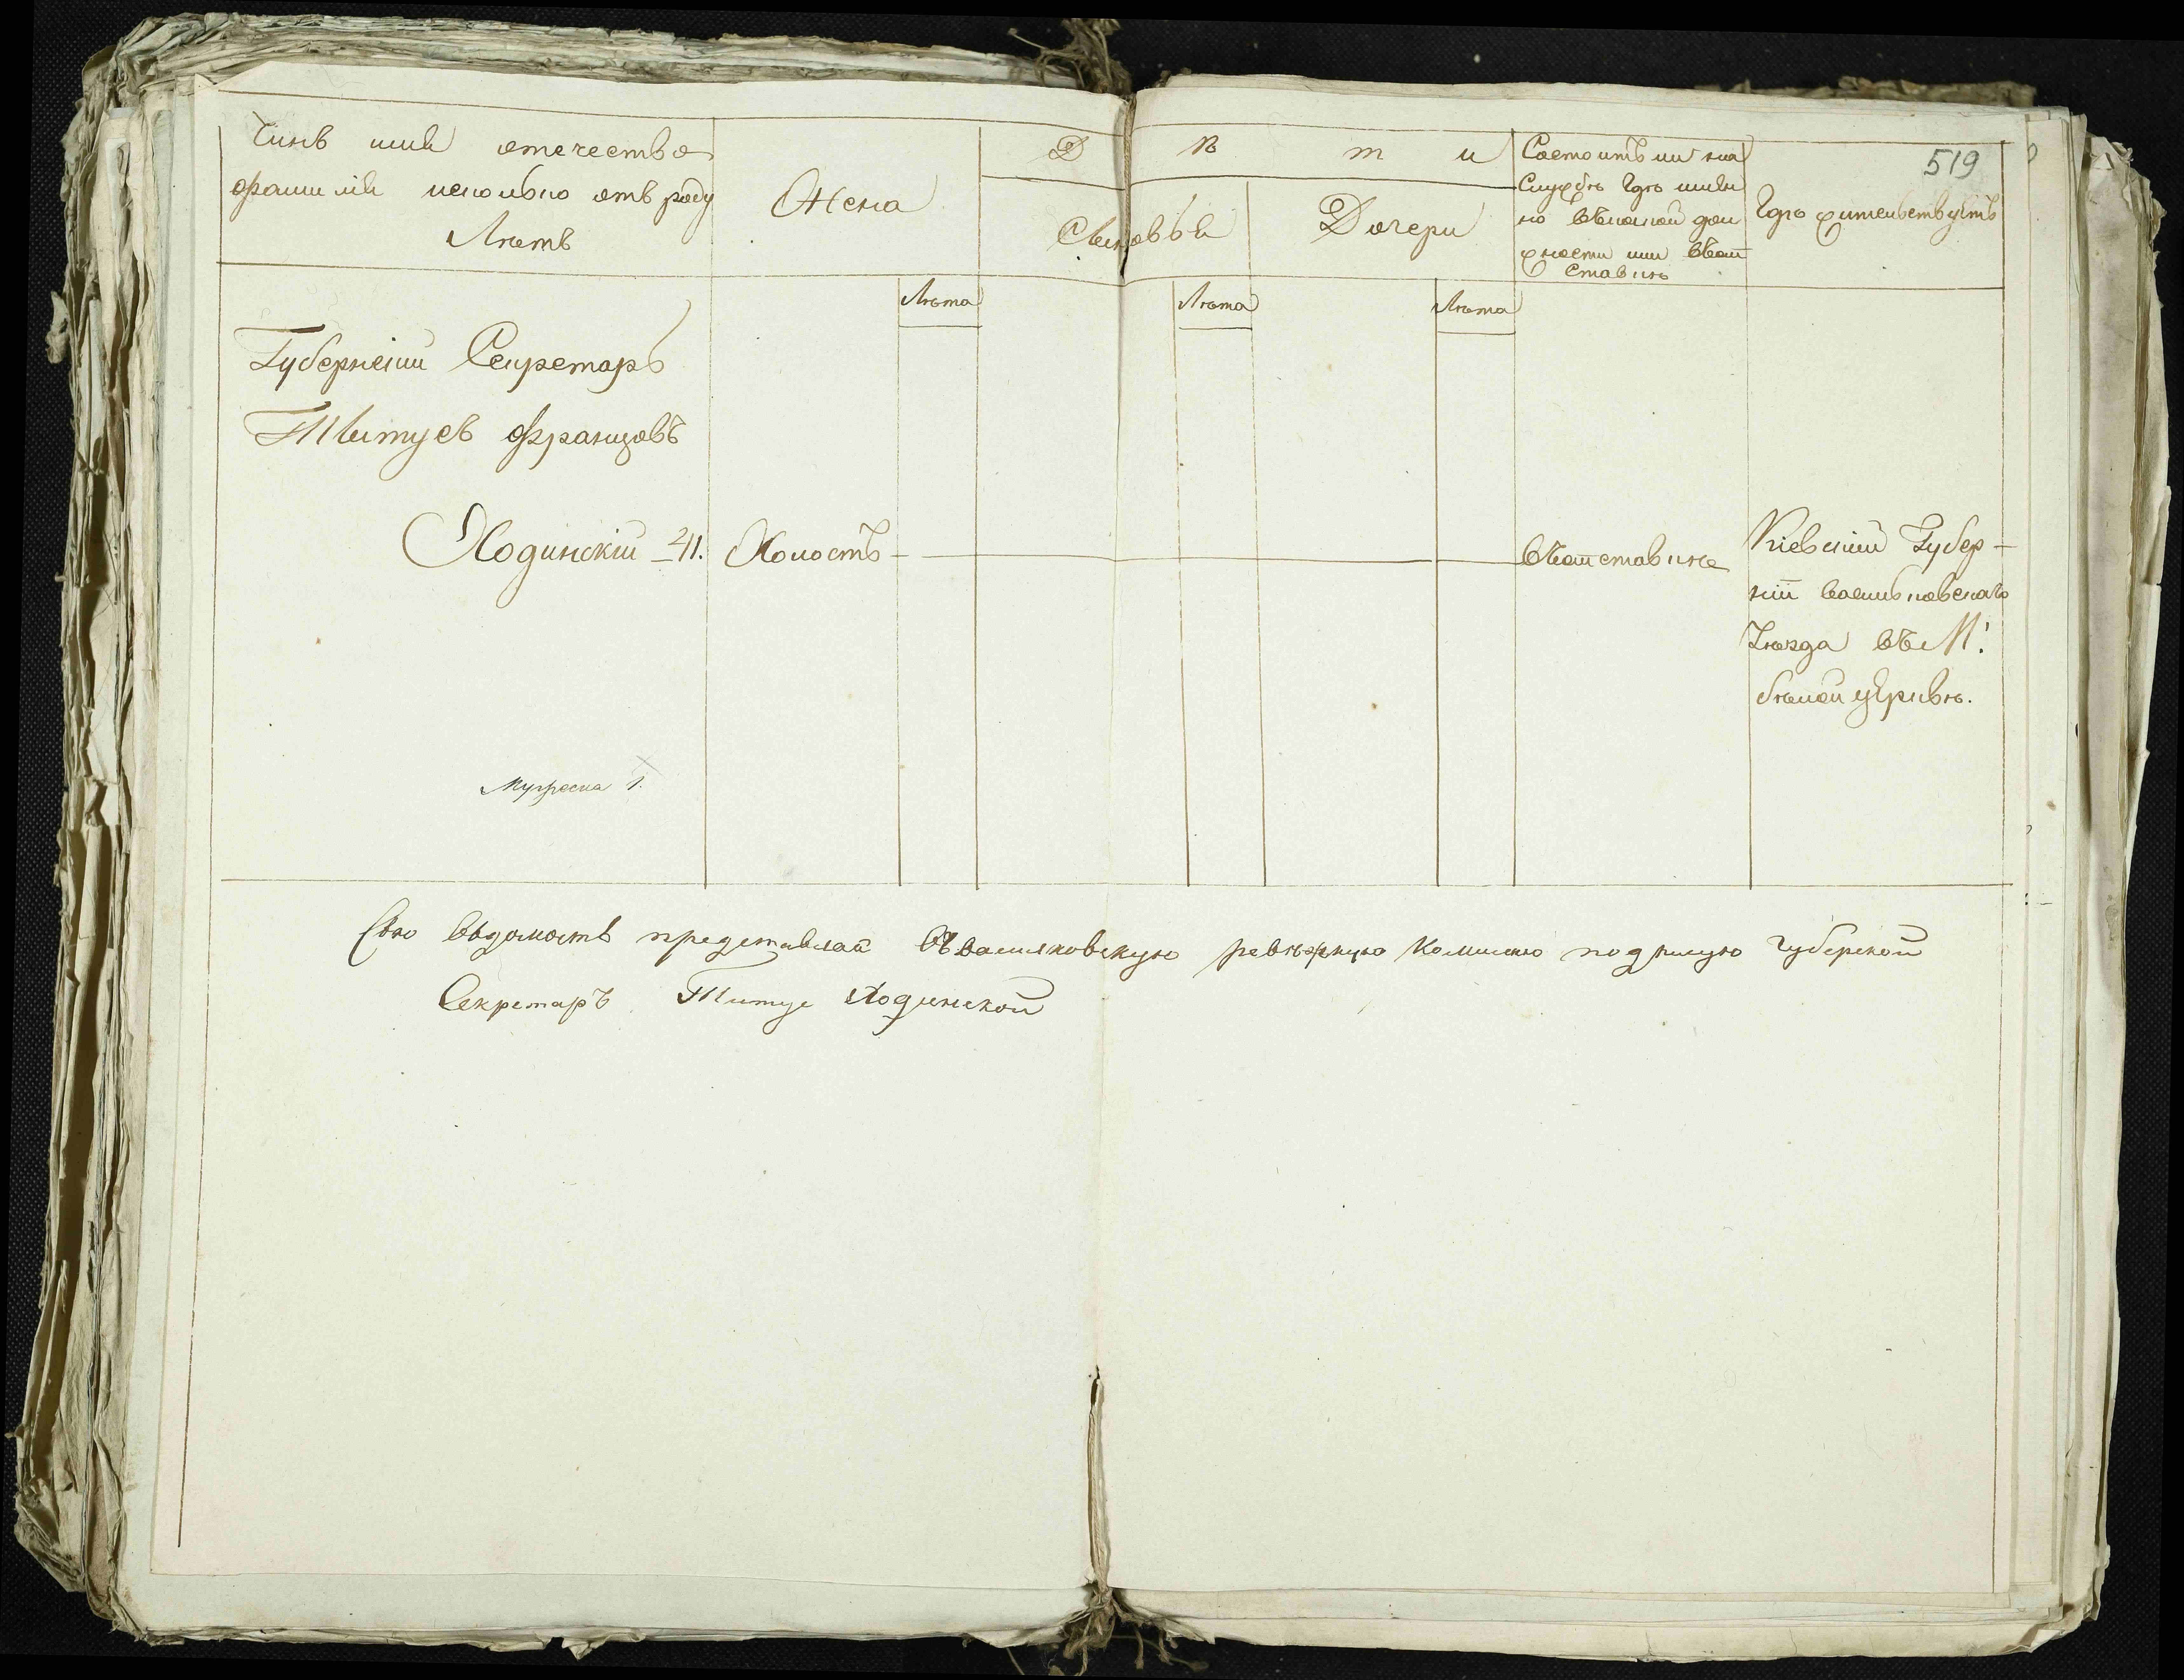 519
Чинъ имя отечество
фамилія исколько отъ роду
Лѣтъ
Жена
Д ѣ т и
Сыновья
Дочери
Состоитъ ли на
Службѣ Гдѣ имян
но вѣкакой дол
жности или вѣот
ставкѣ
Гдѣ жительствуетъ
Лѣта
Лѣта
Лѣта
Губернскій Секретаръ
Титусъ Францовъ
Ходинскій - 41. Холостъ
вѣотставкѣ
Кіевской Губер-
ніи Васильковскаго
Уѣзда въ М:
бѣлой церквѣ.
Мужеска 1.
Сію вѣдомость представлая въ васильковскую ревѣжную комисию подписую Губерской
Секретаръ Титус Ходинской